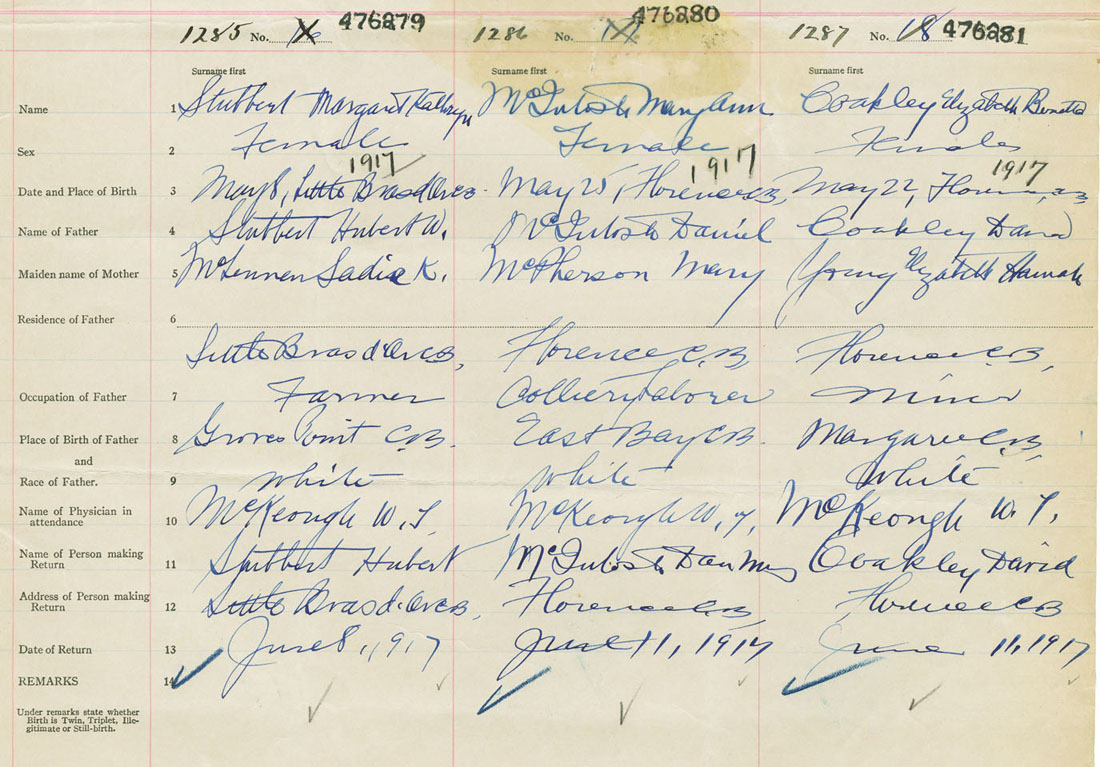 1285 No. 16 476279 1286 No. 17 476280 1287 No. 18 476281
Surname first Surname first Surname first
Name 1 Stubbert Margaret Kathryn McIntosh Mary Ann Coakley Elizabeth
Sex 2 Female Female Female
1917 1917 1917
Date and Place of Birth 3 May 8, Little Bras d'Or C.B. May 25, Florence C.B, May 22, Florence, C.B
Name of Father 4 Stubbert Hubert W. McIntosh Daniel Coakley David
Maiden name of Mother 5 McLennen Sadie K. McPherson Mary Young Elizabeth Hannah
Residence of Father 6
Little Bras d'Or C.B, Florence C.B, Florence C.B,
Occupation of Father 7 Farmer Colliery Laborer Miner
Place of Birth of Father 8 Groves Point C.B. East Bay C.B. Margaree C.B,
and
Race of Father. 9 White White White
Name of Physician in
attendance 10 McKeough W. J McKeough W, J, McKeough W. J,
Name of Person making
Return 11 Stubbert Hubert McIntosh Dan Mrs Coakley David
Address of Person making
Return 12 Little Bras d'Or C.B, Florence C.B Florence C.B
Date of Return 13 June 8, 1917 June 11, 1917 June 11, 1917
REMARKS 14
Under remarks state whether
Birth is Twin, Triplet, Ille-
gitimate or Still-birth.